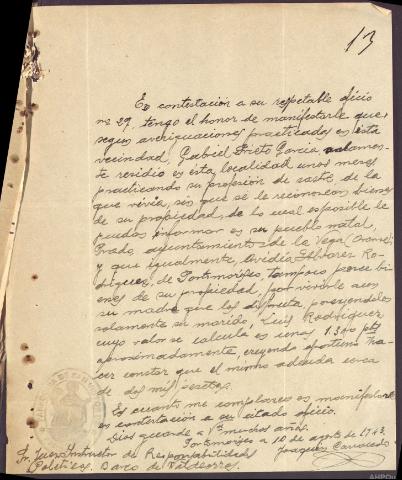 13
En contestación a su respetable oficio
nº 29, tengo el honor de manifestarle que
segun averiguaciones practicadas en esta
vecindad, Gabriel Prieto Garcia, solamen-
te residio en esta localidad unos meses
practicando su profesion de sastre de la
que vivia, sin que se le reconozcan bienes
de su propiedad, de lo cual es posible le
puedan informar en su pueblo natal,
Prado, ayuntamiento de la Vega (Orense)
y que igualmente Ovidia Alvarez Ro-
driguez, de Portomorisco, tampoco posee bi-
enes de su propiedad, por vivirle aun
su madre que los disfruta poseyendolos
solamente su marido, Luis Rodriguez
cuyo valor se calcula en unas 1.300 pts
aproximadamente, creyendo oportuno ha-
cer constar que el mismo adeuda cerca
de dos mil pesetas.
Es cuanto me complazco en manifestarle
en contestación a su citado oficio.
Dios guarde a V. muchos años.
Portomorisco a 10 de agosto de 1943.
Joaquin
Sr. Juez Instructor de Responsabilidades
Politicas. Barco de Valdeorras.